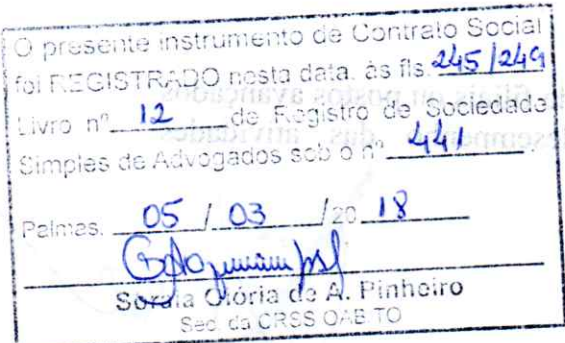 O presente instrumento de Contrato Social
foi REGISTRADO nesta data, às fls. 245/249
Livro nº 12 de Registro de Sociedade
Simples de Advogados sob o nº 441.
Palmas, 05 / 03 / 20 18
Soraia Glória de A. Pinheiro
Sec. da CRSS OAB TO